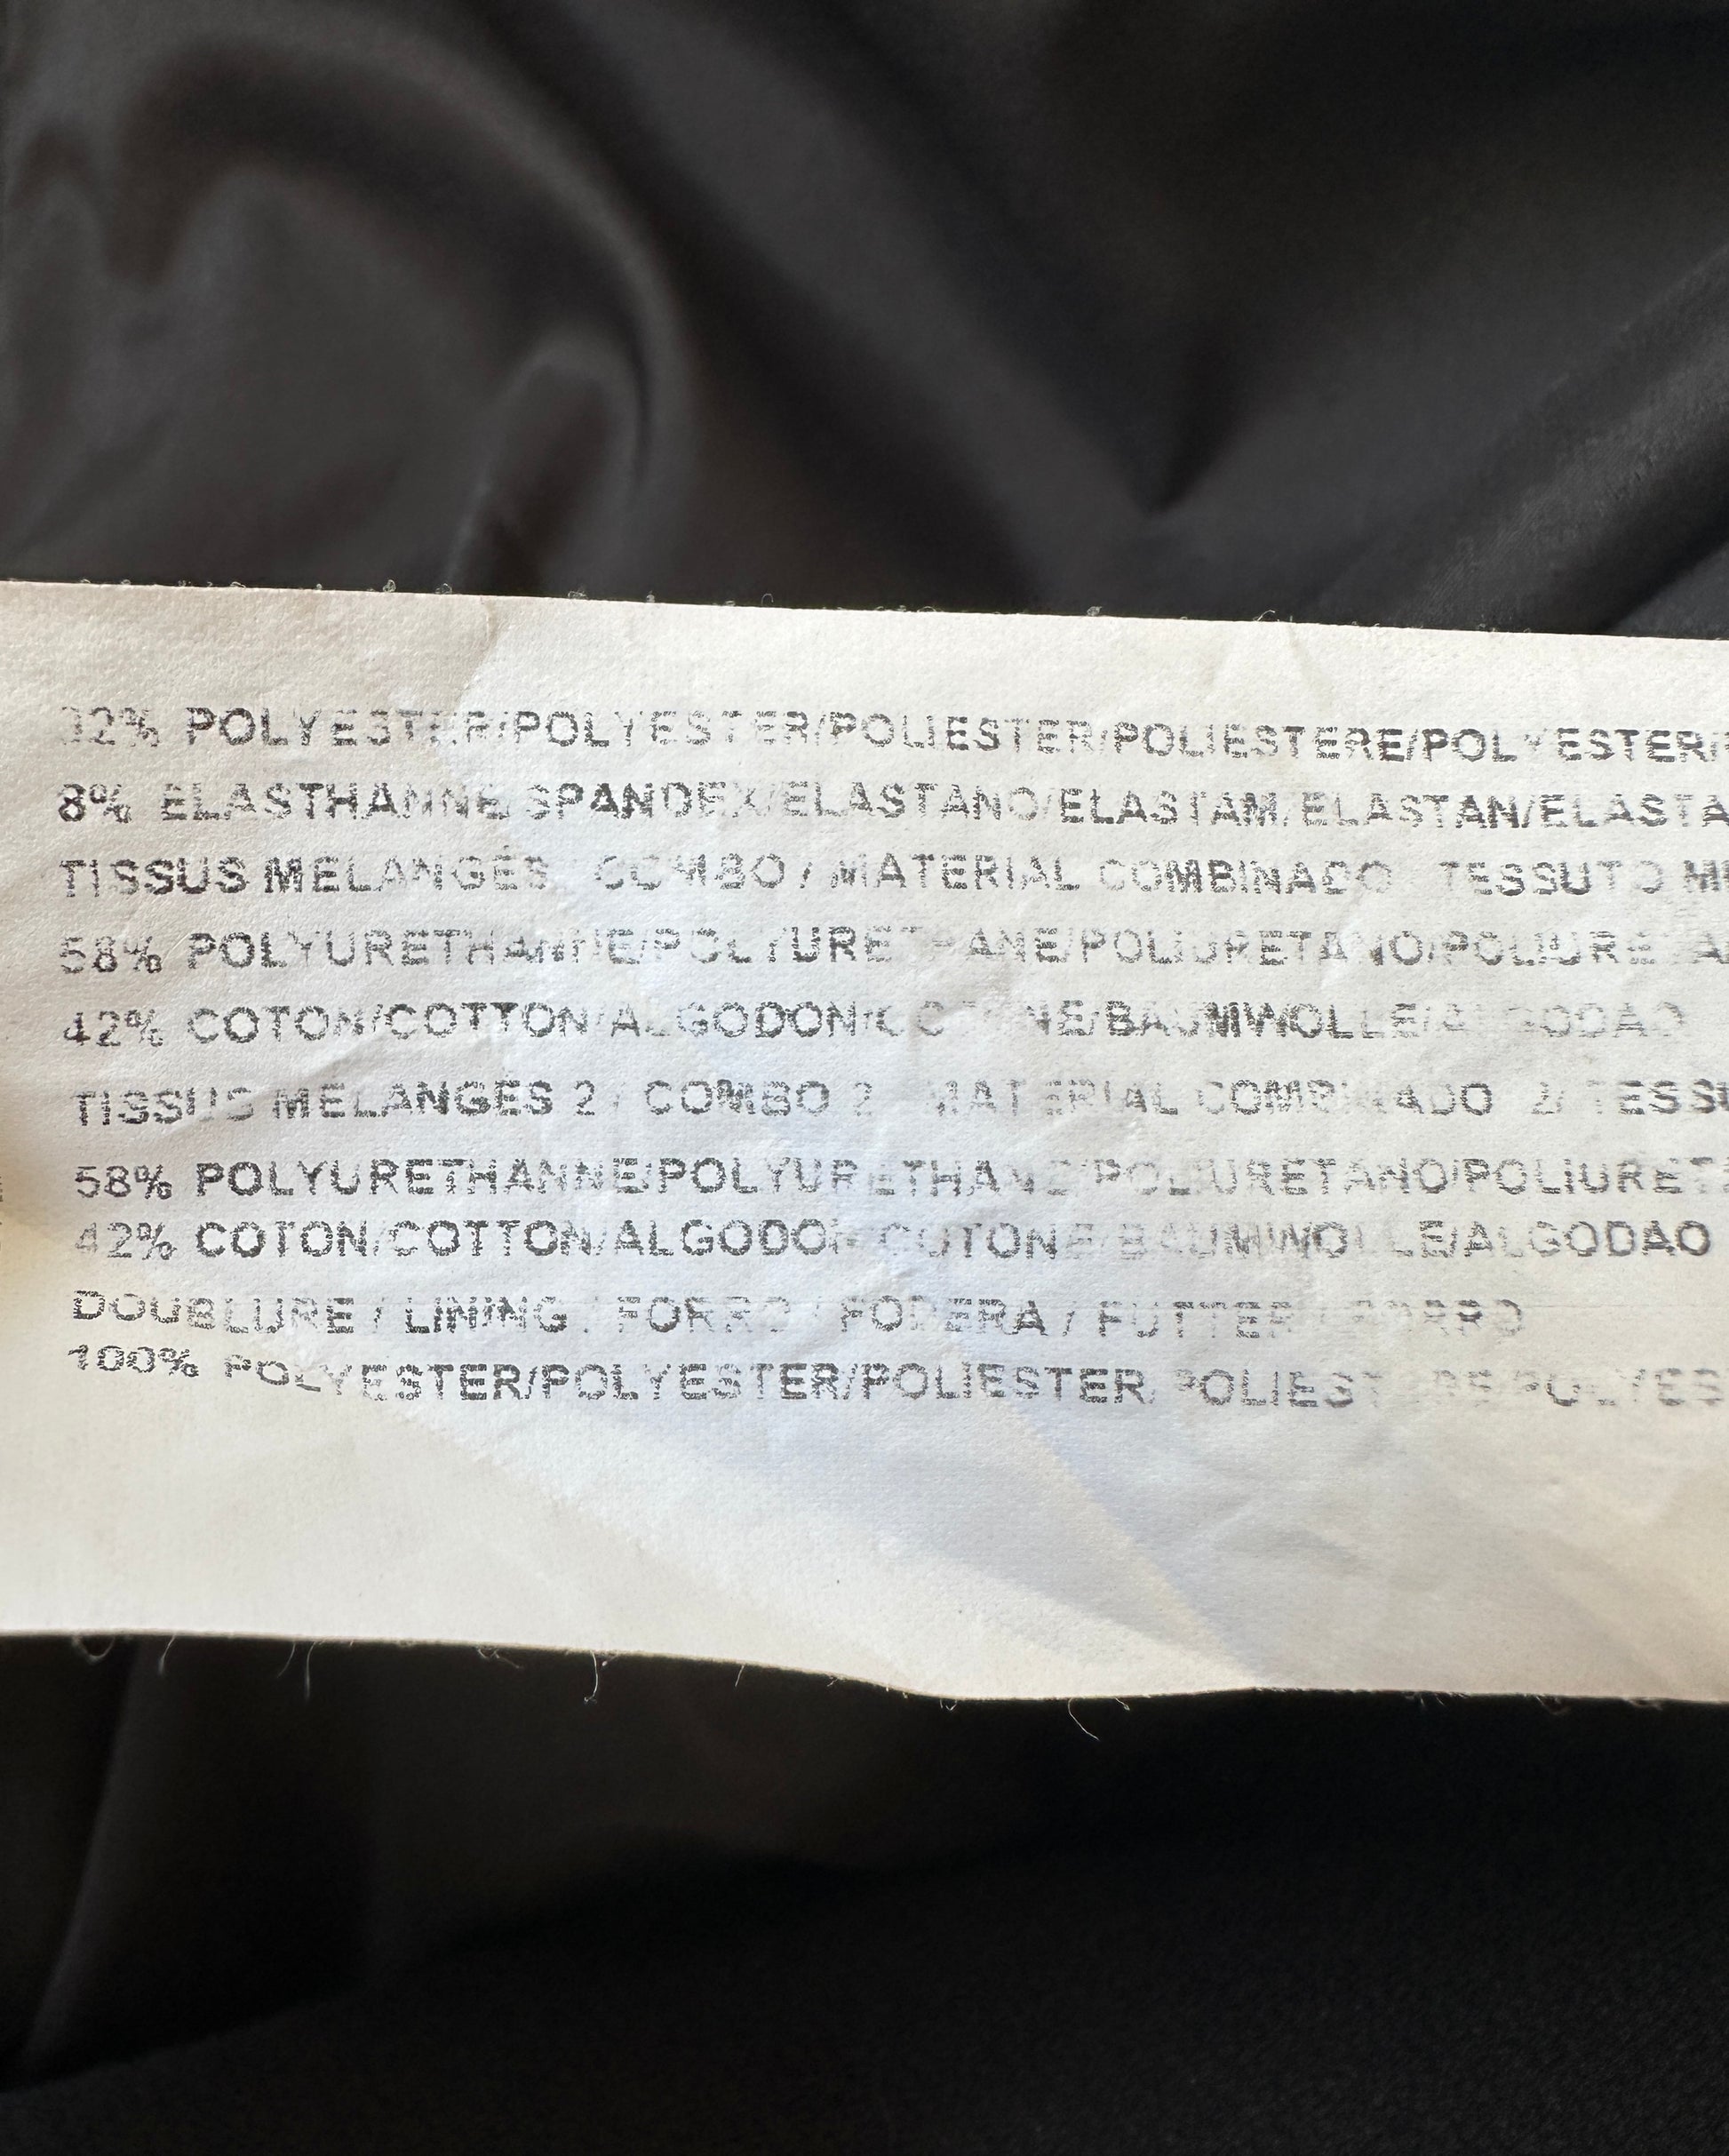 POLYESTER/POLYESTER/POLIESTER/POLIESTERE/POLYESTER/
8% ELASTHANNE/SPANDEX/ELASTANO/ELASTAM/ELASTAN/ELASTA
TISSUS MELANGÉS / COMBO / MATERIAL COMBINADO / TESSUTO MI
58% POLYURETHANNE/POLYURETHANE/POLIURETANO/POLIURETA
42% COTON/COTTON/ALGODON/COTONE/BAUMWOLLE/ALGODAO
TISSUS MELANGÉS 2 / COMBO 2 / MATERIAL COMBINADO 2/ TESSU
58% POLYURETHANNE/POLYURETHANE/POLIURETANO/POLIURETA
42% COTON/COTTON/ALGODON/COTONE/BAUMWOLLE/ALGODAO
DOUBLURE / LINING / FORRO / FODERA / FUTTER / FORRO
100% POLYESTER/POLYESTER/POLIESTER/POLIESTERE/POLYES